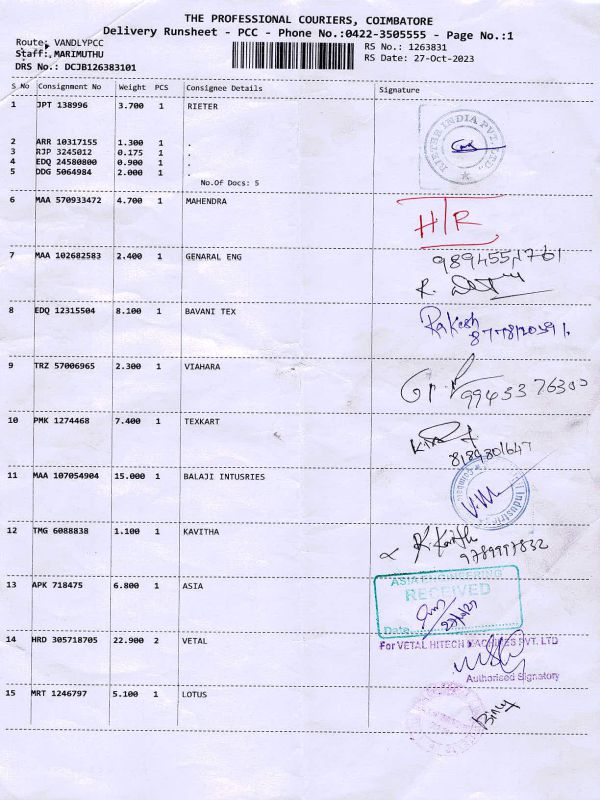 THE PROFESSIONAL COURIERS, COIMBATORE
Delivery Runsheet - PCC - Phone No.:0422-3505555 - Page No.:1
Route: VANDLYPCC
RS No.: 1263831
Staff: MARIMUTHU
RS Date: 27-Oct-2023
DRS No.: DCJB126383101
S No Consignment No Weight PCS Consignee Details Signature
1 JPT 138996 3.700 1 RIETER
RIETER INDIA PVT. LTD.
2 ARR 10317155 1.300 1 .
3 RJP 3245012 0.175 1 .
4 EDQ 24580800 0.900 1 .
5 DDG 5064984 2.000 1 .
No.Of Docs: 5
6 MAA 570933472 4.700 1 MAHENDRA
HTR
7 MAA 102682583 2.400 1 GENARAL ENG
8 EDQ 12315504 8.100 1 BAVANI TEX
Rakesh
9 TRZ 57006965 2.300 1 VIAHARA
9945376300
10 PMK 1274468 7.400 1 TEXKART
8189801647
11 MAA 107054904 15.000 1 BALAJI INTUSRIES
V.M
12 TMG 6088838 1.100 1 KAVITHA
K. Kavitha
9789997832
13 APK 718475 6.800 1 ASIA
ASIA ENGINEERING
RECEIVED
Date
14 HRD 305718705 22.900 2 VETAL
For VETAL HITECH MACHINES PVT. LTD
Authorised Signatory
15 MRT 1246797 5.100 1 LOTUS